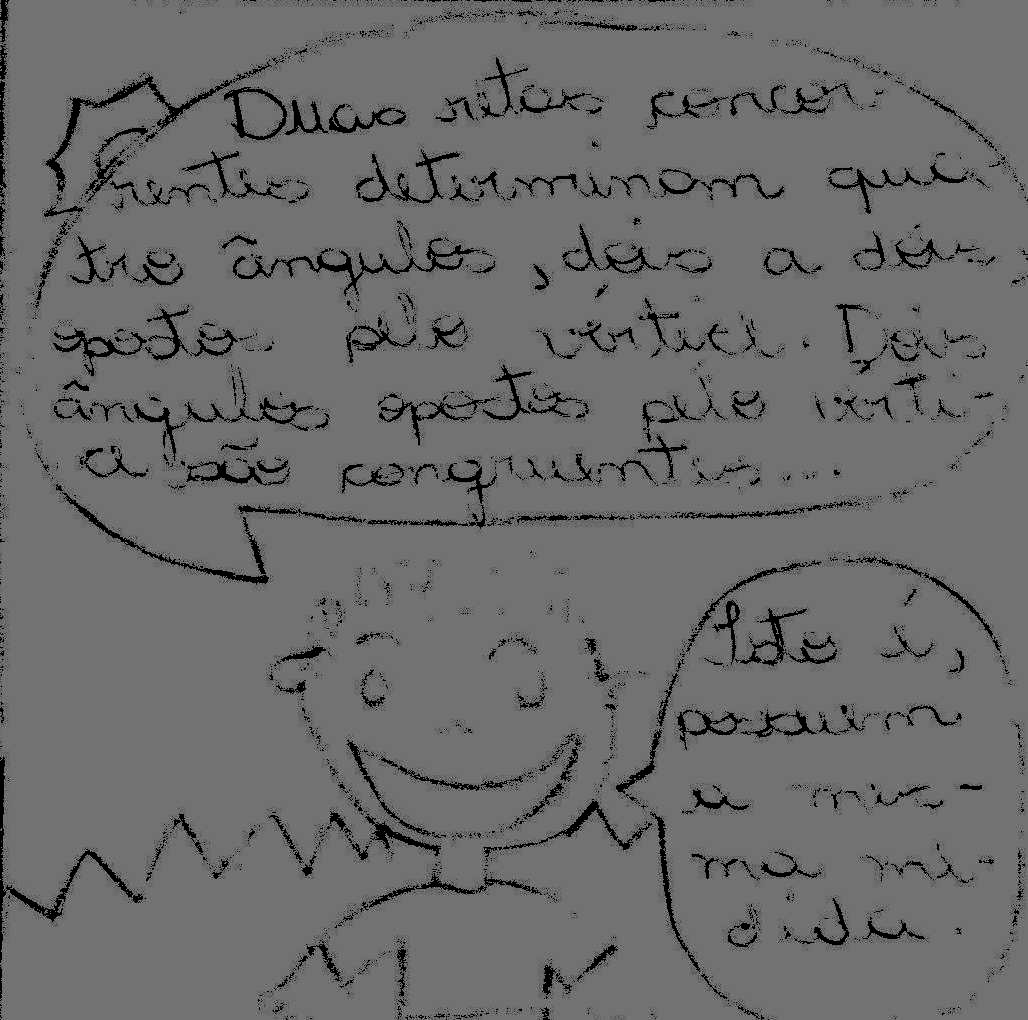 Duas retas concor-
rentes determinam qua-
tro ângulos, dois a dois,
opostos pelo vértice. Dois
ângulos opostos pelo vérti-
ce são congruentes...
Isto é,
possuem
a mes-
ma me-
dida.